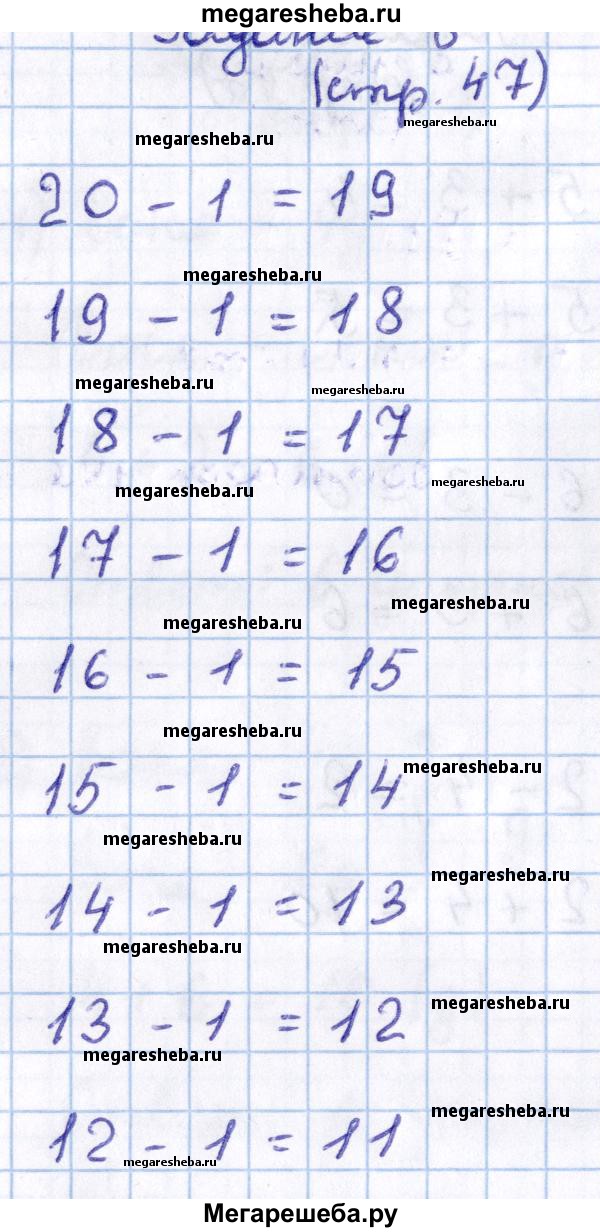 megaresheba.ru
(стр. 47)
megaresheba.ru
megaresheba.ru
20 - 1 = 19
megaresheba.ru
19 - 1 = 18
megaresheba.ru
megaresheba.ru
18 - 1 = 17
megaresheba.ru
megaresheba.ru
17 - 1 = 16
megaresheba.ru
megaresheba.ru
16 - 1 = 15
megaresheba.ru
megaresheba.ru
15 - 1 = 14
megaresheba.ru
megaresheba.ru
14 - 1 = 13
megaresheba.ru
megaresheba.ru
13 - 1 = 12
megaresheba.ru
megaresheba.ru
12 - 1 = 11
megaresheba.ru
Мегарешеба.ру